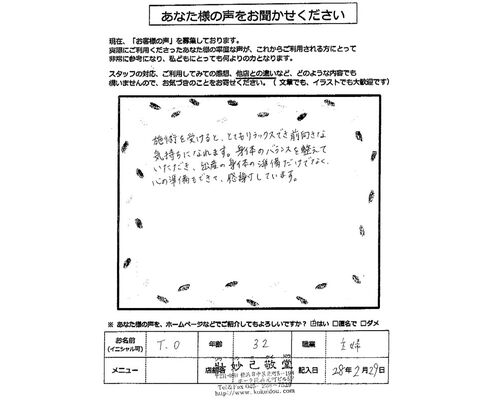 あなた様の声をお聞かせください
現在、「お客様の声」を募集しております。
実際にご利用くださったあなた様の率直な声が、これからご利用される方にとって
非常に参考になり、私どもにとっても何よりの力となります。
スタッフの対応、ご利用してみての感想、他店との違いなど、どのような内容でも
構いませんので、お気づきのことをお寄せください。（ 文章でも、イラストでも大歓迎です）
施術を受けると、とてもリラックスでき前向きな
気持ちになれます。身体のバランスを整えて
いただき、出産の身体の準備だけでなく、
心の準備もできて、感謝しています。
※ あなた様の声を、ホームページなどでご紹介してもよろしいですか？ ☑はい ☐匿名で ☐ダメ
お名前 T.O 年齢 32 職業 主婦
(イニシャル可)
メニュー 店舗名 妙己敬堂 記入日 28年2月29日
http://www.kokeidou.com